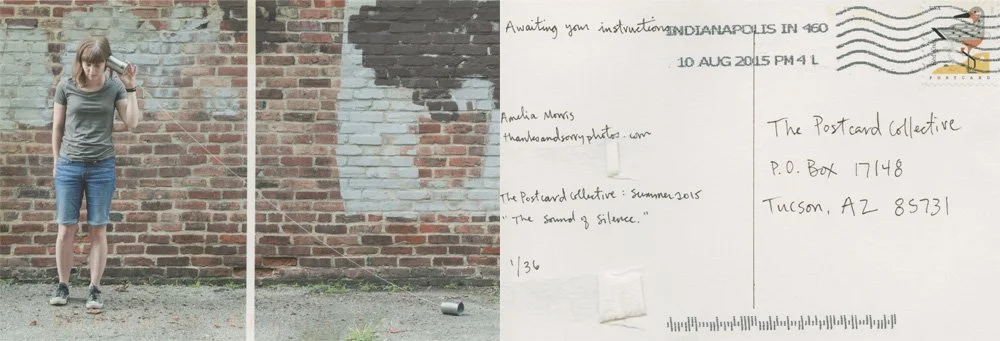 Awaiting your instructions
INDIANAPOLIS IN 460
10 AUG 2015 PM 4 L
POSTCARD
Amelia Morris
thanksandsorryphotos.com
The Postcard Collective : Summer 2015
"The sound of silence."
1/36
The Postcard Collective
P.O. Box 17148
Tucson, AZ 85731